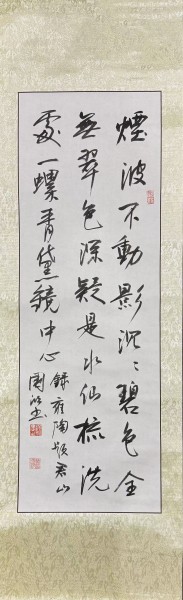 煙波不動影沉〻碧色全
無翠色深疑是水仙梳洗
處一螺青黛鏡中心
錄雍陶題君山